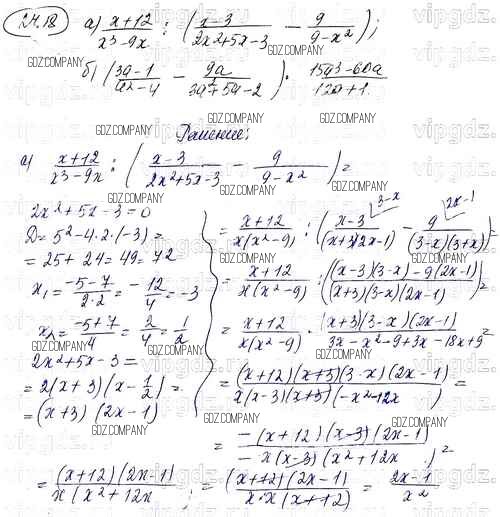 24.18 a) \frac{x+12}{x^3-9x} : (\frac{x-3}{2x^2+5x-3} - \frac{9}{9-x^2});
б) (\frac{3a-1}{a^2-4} - \frac{9a}{3a^2+5a-2}) \cdot \frac{15a^3-60a}{12a+1}.
Решение:
а) \frac{x+12}{x^3-9x} : (\frac{x-3}{2x^2+5x-3} - \frac{9}{9-x^2}) =
2x^2+5x-3=0
D=5^2-4·2·(-3)=
=25+24=49=7^2
x_1=\frac{-5-7}{2·2}=-\frac{12}{4}=-3
x_2=\frac{-5+7}{4}=\frac{2}{4}=\frac{1}{2}
2x^2+5x-3=
=2(x+3)(x-\frac{1}{2})=
=(x+3)(2x-1)
= \frac{x+12}{x(x^2-9)} : (\frac{x-3}{(x+3)(2x-1)} - \frac{9}{(3-x)(3+x)}) = 3-x 2x-1
= \frac{x+12}{x(x^2-9)} : (\frac{(x-3)(3-x)-9(2x-1)}{(x+3)(3-x)(2x-1)}) =
= \frac{x+12}{x(x^2-9)} · \frac{(x+3)(3-x)(2x-1)}{3x-x^2-9+3x-18x+9} =
= \frac{(x+12)(x+3)(3-x)(2x-1)}{x(x-3)(x+3)(-x^2-12x)} =
= \frac{-(x+12)(x-3)(2x-1)}{-x(x-3)(x^2+12x)} =
= \frac{(x+12)(2x-1)}{x(x^2+12x} = \frac{(x+12)(2x-1)}{x·x(x+12)} = \frac{2x-1}{x^2}
GDZ.COMPANY
vipgdz.ru